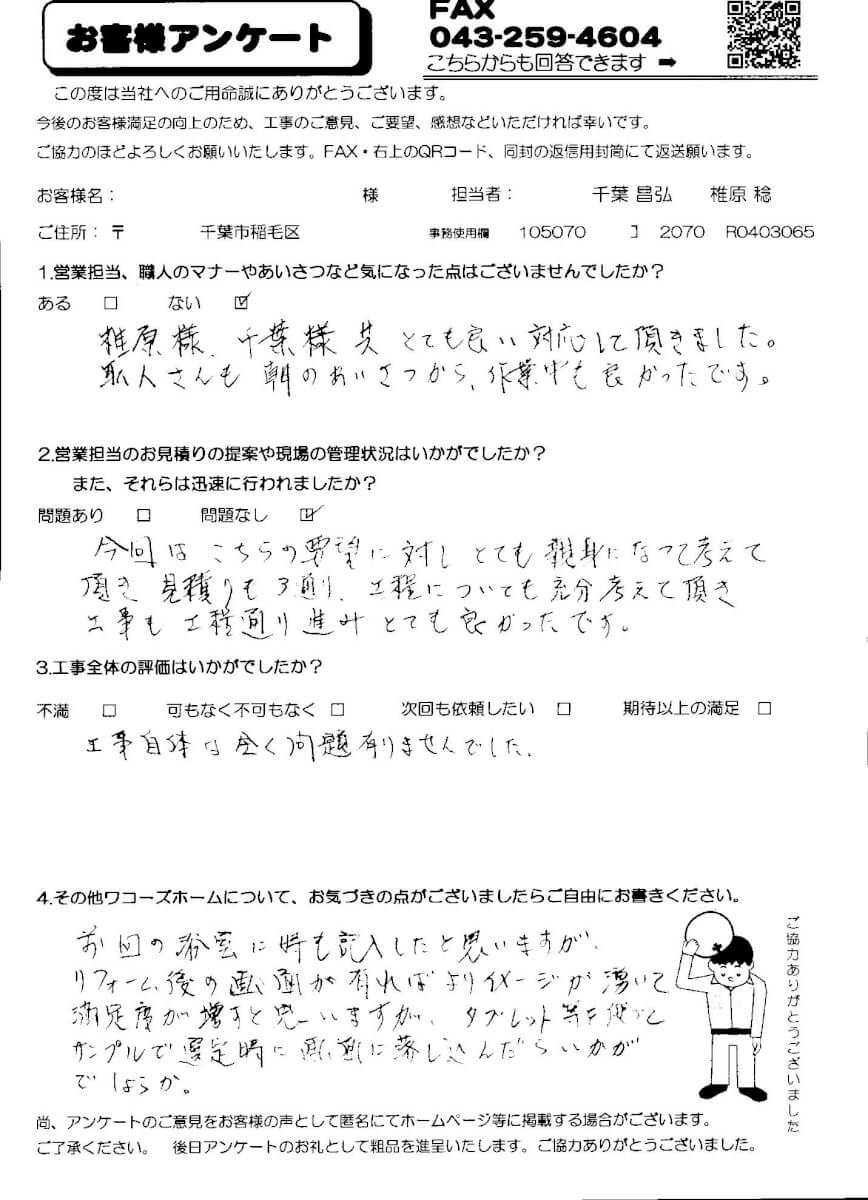 お客様アンケート
FAX
043-259-4604
こちらからも回答できます ➡
この度は当社へのご用命誠にありがとうございます。
今後のお客様満足の向上のため、工事のご意見、ご要望、感想などいただければ幸いです。
ご協力のほどよろしくお願いいたします。FAX・右上のQRコード、同封の返信用封筒にて返送願います。
お客様名： 様 担当者： 千葉 昌弘 椎原 稔
ご住所：〒 千葉市稲毛区 事務使用欄 105070 】 2070 R0403065
1.営業担当、職人のマナーやあいさつなど気になった点はございませんでしたか？
ある □ ない ☑
椎原様、千葉様共 とても良い対応して頂きました。
職人さんも 朝のあいさつから、作業中も良かったです。
2.営業担当のお見積りの提案や現場の管理状況はいかがでしたか？
また、それらは迅速に行われましたか？
問題あり □ 問題なし ☑
今回は こちらの要望に対し とても親身になって考えて
頂き 見積りも3通り、工程についても充分考えて頂き
工事も工程通り進みとても良かったです。
3.工事全体の評価はいかがでしたか？
不満 □ 可もなく不可もなく □ 次回も依頼したい □ 期待以上の満足 □
工事自体は全く問題有りませんでした。
4.その他ワコーズホームについて、お気づきの点がございましたらご自由にお書きください。
前回の浴室に時も記入したと思いますが、
リフォーム後の画面が有ればよりイメージが湧いて
満足度が増すと思いますが、タブレット等を使って
サンプルで選定時に画面に落し込んだらいかが
でしょうか。
ご協力ありがとうございました
尚、アンケートのご意見をお客様の声として匿名にてホームページ等に掲載する場合がございます。
ご了承ください。 後日アンケートのお礼として粗品を進呈いたします。ご協力ありがとうございました。